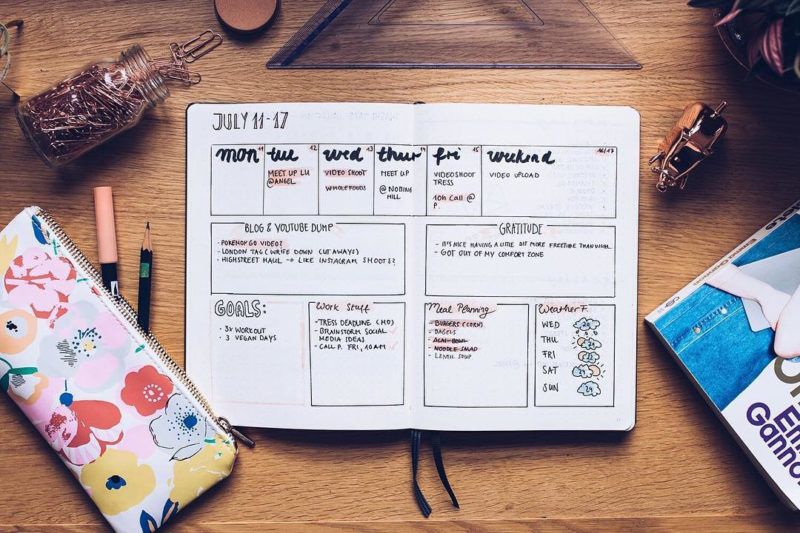 JULY 11-17
mon 11 tue 12 wed 13 thur 14 fri 15 weekend 16/17
MEET UP LU
@ANGEL
VIDEO SHOOT
WHOLEFOODS
MEET UP
@ NOTTING
HILL
VIDEOSHOOT
TRESS
10h Call @
P.
VIDEO UPLOAD
BLOG & YOUTUBE DUMP
- POKEMON GO VIDEO?
- LONDON TAG (WRITE DOWN CUTAWAYS)
- HIGHSTREET HAUL → LIKE INSTAGRAM SHOOTS?
GRATITUDE
- IT'S NICE HAVING A LITTLE BIT MORE FREETIME THAN USUAL
- GOT OUT OF MY COMFORT ZONE
GOALS:
· 3x WORKOUT
· 3 VEGAN DAYS
Work Stuff
- TRESS DEADLINE (MO)
- BRAINSTORM SOCIAL
MEDIA IDEAS
- CALL P. FRI, 10AM
Meal Planning
- BURGERS (CORN)
- BAGELS
- ACAI BOWL
- NOODLE SALAD
- LENTIL SOUP
Weather F.
WED
THU
FRI
SAT
SUN
Emm
Gannon